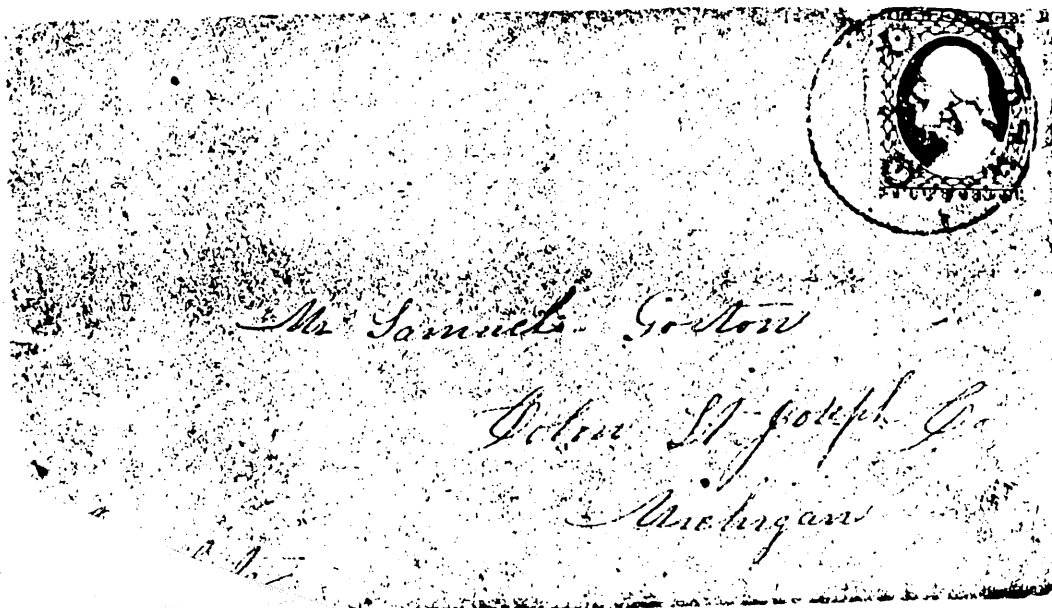 Mr Samuel Gorton
Colon St Joseph Co
Michigan